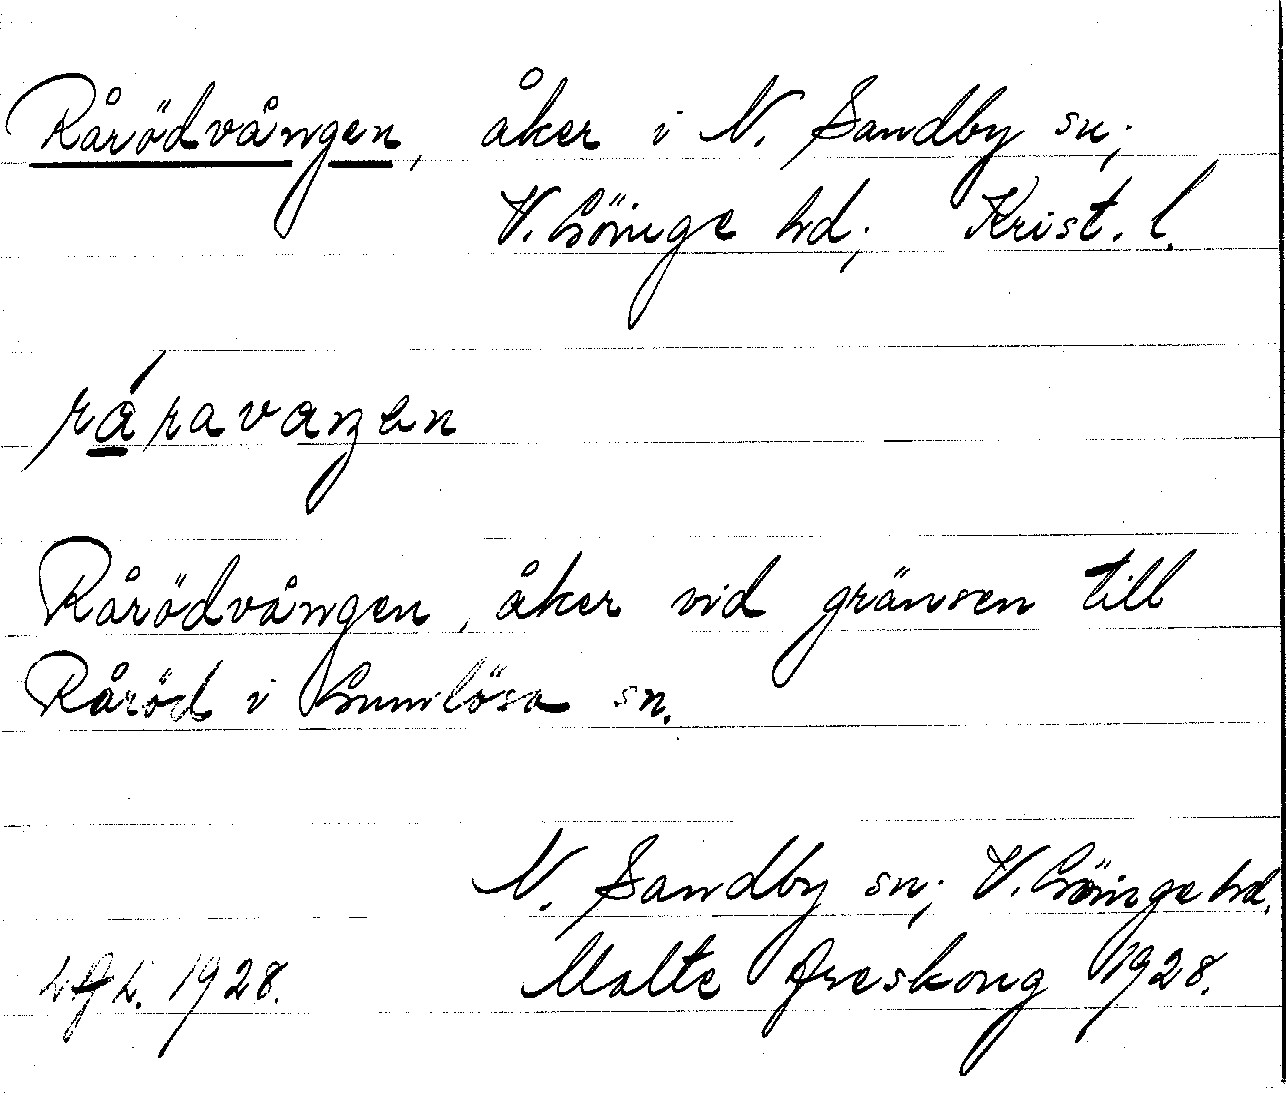 Rårödvången, åker i N. Sandby sn;
V. Göinge hd; Krist. l.
råravaŋen
Rårödvången, åker vid gränsen till
Råröd i Gumlösa sn.
N. Sandby sn; V. Göinge hd.
1928. Malte Areskoug 1928.